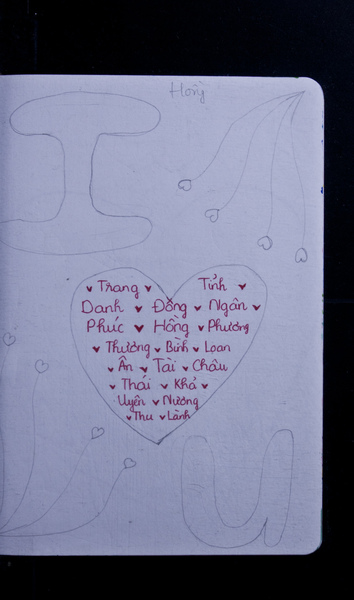 Hồng
I
Trang Tỉnh
Danh Đồng Ngân
Phúc Hồng Phương
Thương Bình Loan
Ân Tài Châu
Thái Khả
Uyên Nương
Thu Lành
u